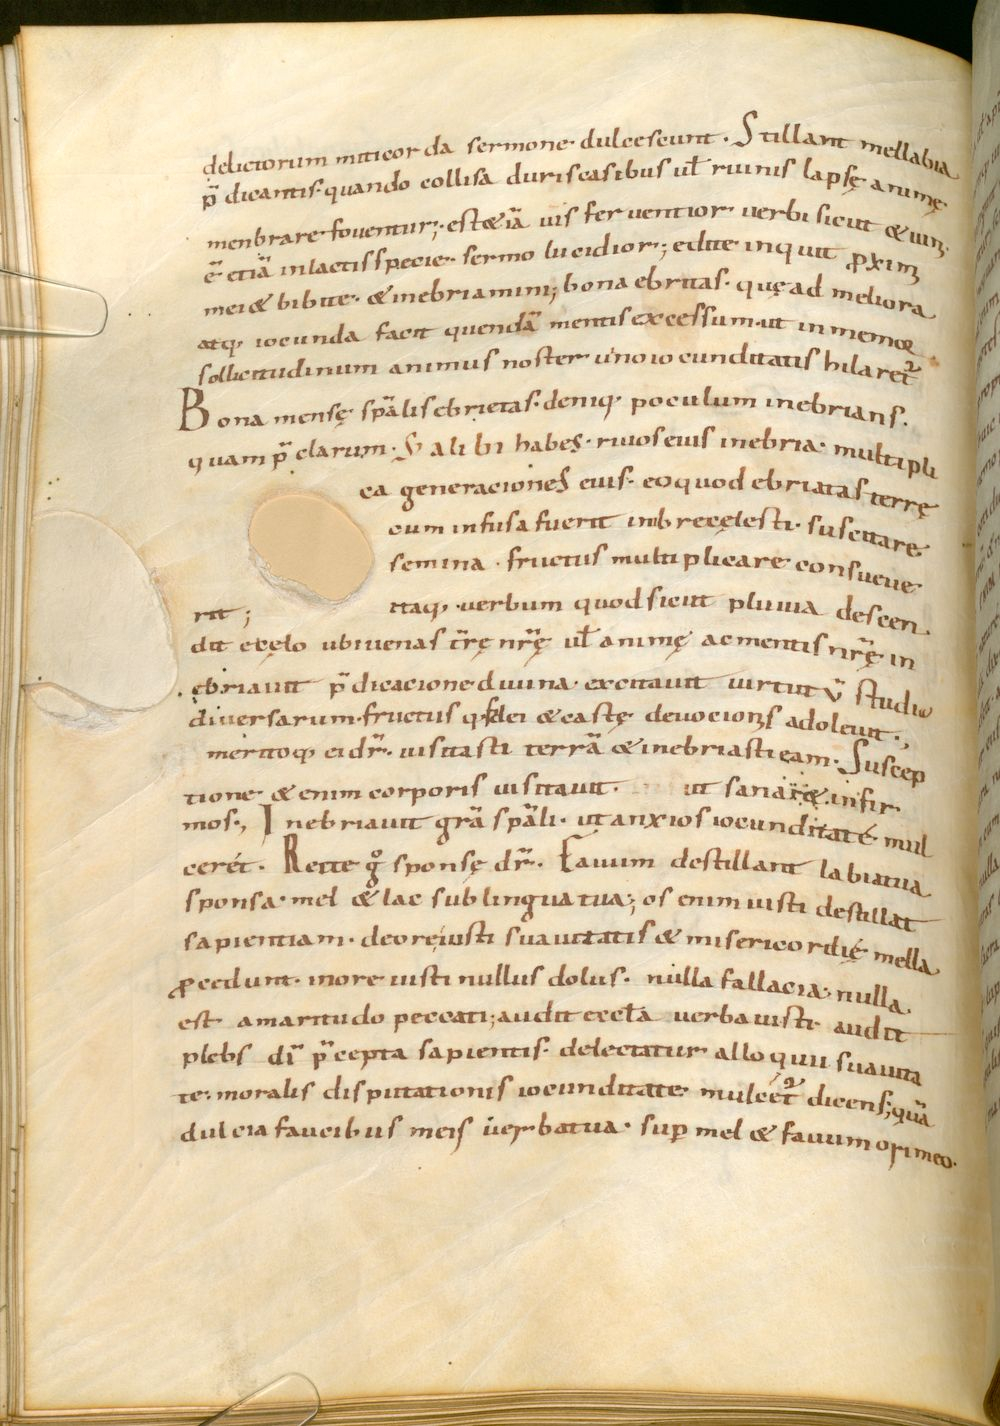 delictorum miticorda sermone dulcescunt. Stillant mella labia
p̄dicantis. quando collisa duris casibus ul̄ ruinis lapsę animę
menbra refoventur; est & iā uis feruentior uerbi sicut & uini.
ē etiā in lactis specie sermo lucidior; edite inquit proximi
mei & bibite. & inebriamini; bona ebritas. quę ad meliora
atq. iocunda facit quendā mentis excessum. ut inmemor
sollicitudinum animus noster uino iocunditatis hilaret᷑
Bona mensę sp̄alis ebrietas. deniq. poculum inebrians.
quam p̄clarum. Et alibi habes. riuos eius inebria. multipli
ca generaciones eius. eo quod ebriatas terrę
cum infusa fuerit imbre cęlesti. suscitare
semina. fructus multiplicare consueue
rit; itaq. uerbum quod sicut pluuia descen
dit e cęlo ubi uenas tr̄ę nr̄ę ul̄ animę ac mentis nr̄ę in
ębriauit p̄dicacione diuina. excitauit uirtutū studio
diuersarum. fructus q. fidei & castę deuocionis adoleuit.;
meritoq. ei dr̄. uisitasti terrā & inebriasti eam. Suscep
tione & enim corporis uisitauit. ut sanaret infir
mos., Inebriauit grā sp̄ali. ut anxios iocunditate mul
ceret. Recte g° sponsę dr̄. Fauum destillant labia tua
sponsa. mel & lac sub lingua tua; os enim iusti destillat
sapientiam. de ore iusti suauitatis & misericordię mella
procedunt. in ore iusti nullus dolus. nulla fallacia. nulla
est amaritudo peccati; audit eccl̄a uerba iusti audit
plebs dī p̄cepta sapientis. delectatur alloquii suauita
te. moralis disputationis iocunditate mulcet᷑ dicens; quā
dulcia faucibus meis uerba tua. sup mel & fauum ori meo.